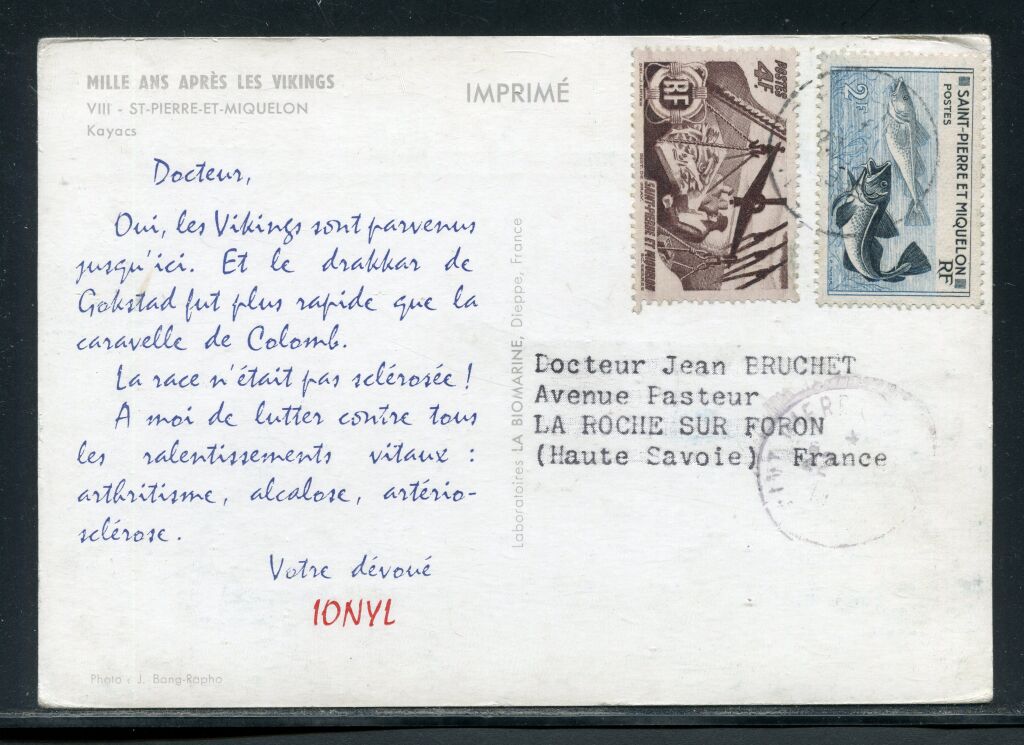 MILLE ANS APRÈS LES VIKINGS
VIII - ST-PIERRE-ET-MIQUELON
Kayacs
IMPRIMÉ
Docteur,
Oui, les Vikings sont parvenus
jusqu'ici. Et le drakkar de
Gokstad fut plus rapide que la
caravelle de Colomb.
La race n'était pas sclérosée !
A moi de lutter contre tous
les ralentissements vitaux :
arthritisme, alcalose, artério-
sclérose.
Votre dévoué
IONYL
Photo : J. Bang-Rapho
Laboratoires LA BIOMARINE, Dieppe, France
POSTES 4F
RF
SAINT-PIERRE ET MIQUELON
2F
SAINT-PIERRE ET MIQUELON
POSTES
RF
Docteur Jean BRUCHET
Avenue Pasteur
LA ROCHE SUR FORON
(Haute Savoie) France